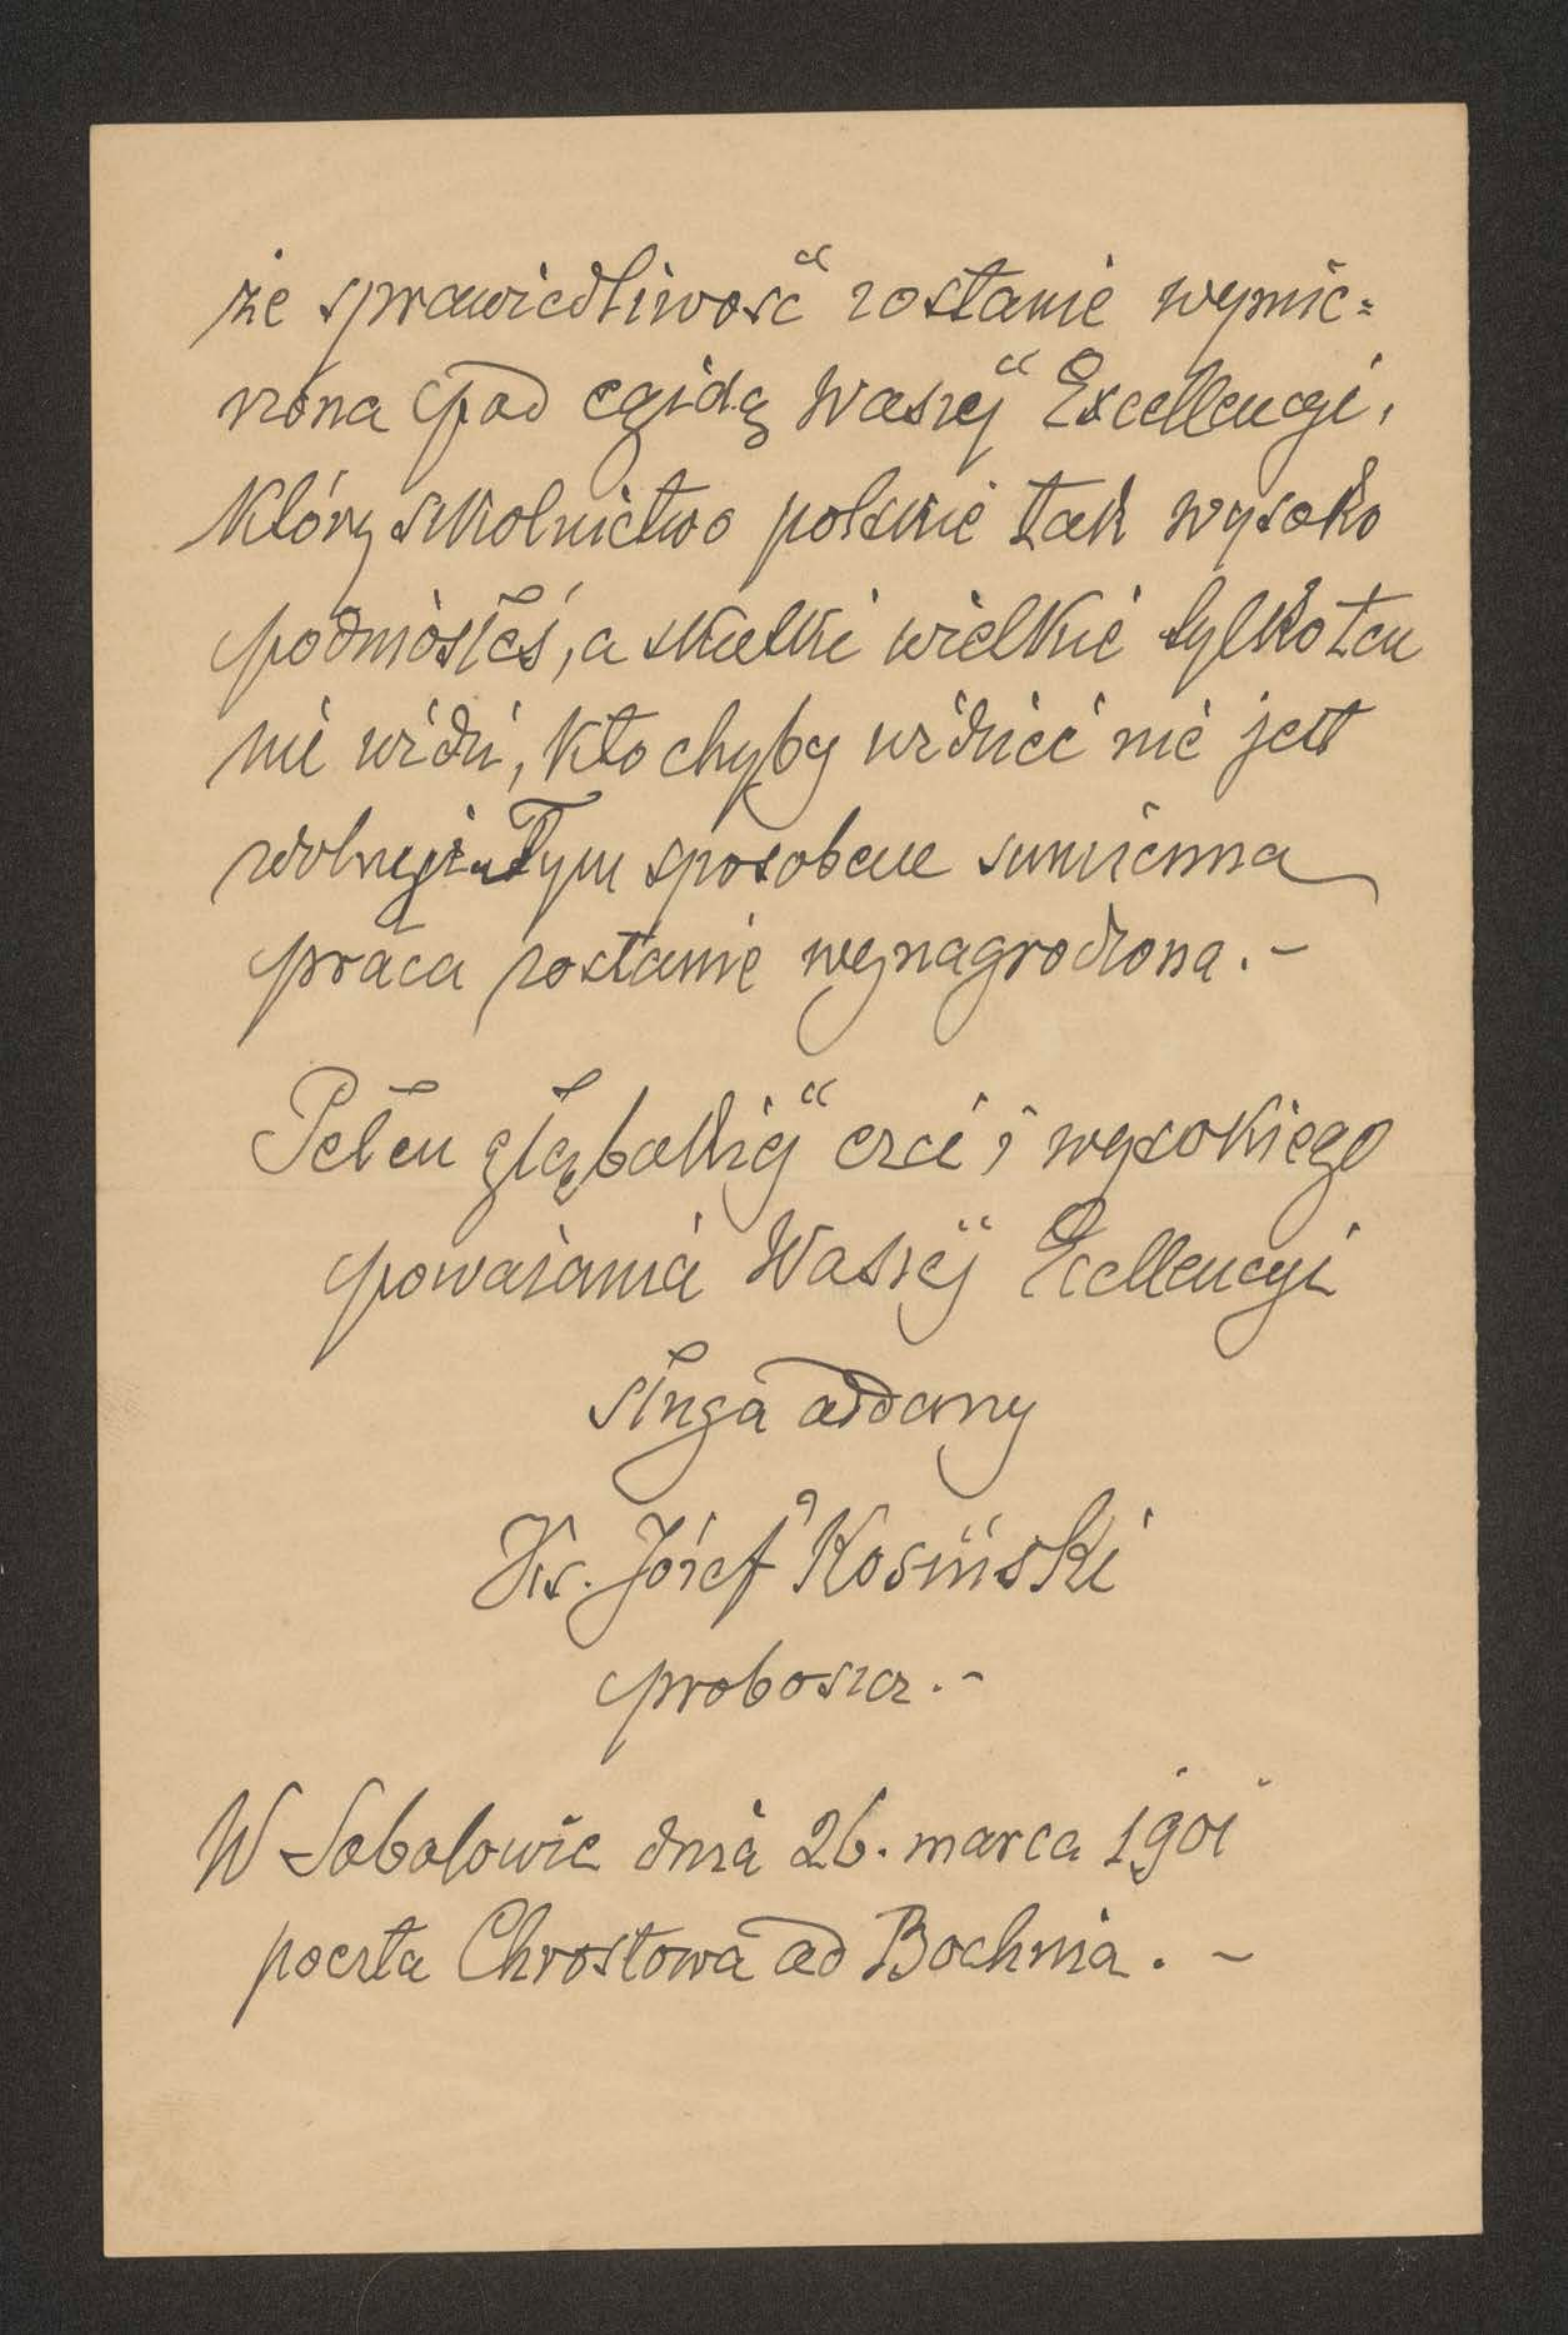 że sprawiedliwość zostanie wymie=
rzona pod egidą Waszéj Excellencyi,
który szkolnictwo polskie tak wysoko
podniosłeś, a skutki wielkie tylko ten
nie widzi, kto chyba widzieć nie jest
zdolny. Tym sposobem sumienna
praca zostanie wynagrodzona. –
Pełen głębokiéj czci i wysokiego
poważania Waszéj Excellencyi
sługa oddany
Ks. Józef Kosiński
proboszcz. –
W Sobolowie dnia 26. marca 1901
poczta Chrostowa ad Bochnia. –